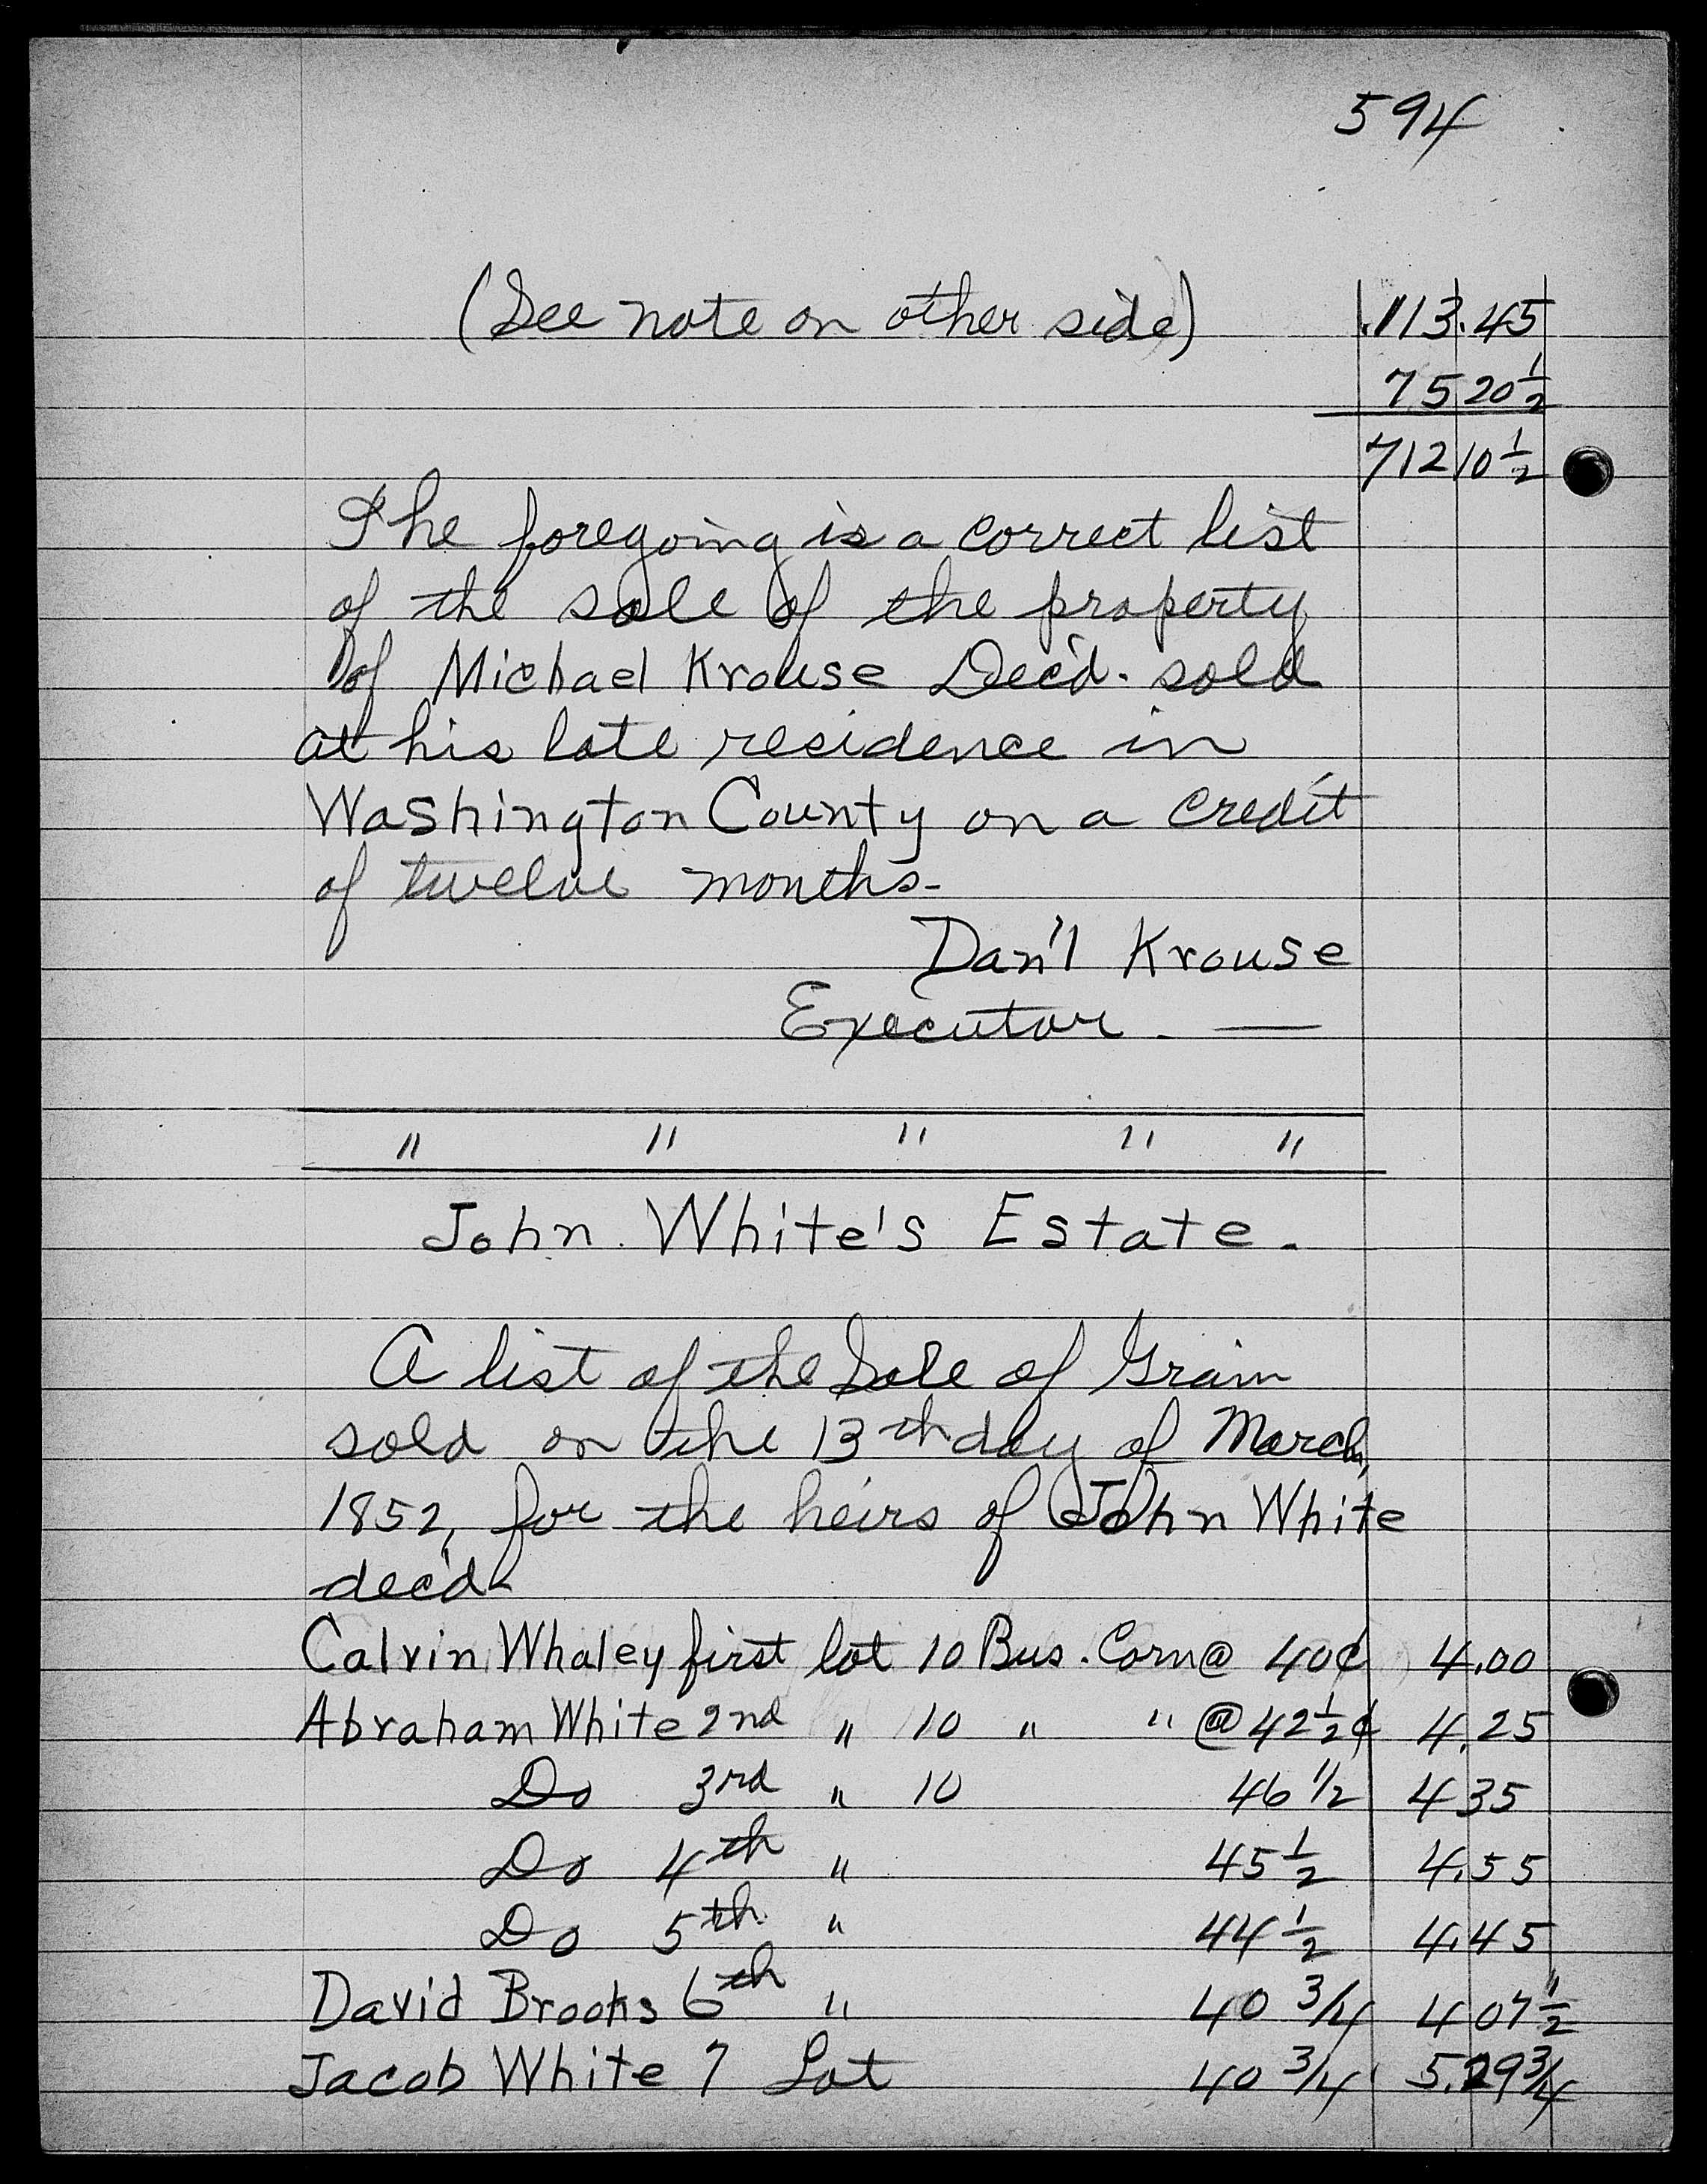 594
(See note on other side) 113.45
75 20 1/2
712 10 1/2
The foregoing is a correct list
of the sale of the property
of Michael Krouse Dec'd. sold
at his late residence in
Washington County on a credit
of twelve months-
Dan'l Krouse
Executor. —
" " " " "
John White's Estate.
A list of the Sale of Grain
sold on the 13th day of March,
1852, for the heirs of John White
dec'd-
Calvin Whaley first lot 10 Bus. Corn @ 40¢ 4.00
Abraham White 2nd " 10 " " @ 42 1/2¢ 4.25
Do 3rd " 10 46 1/2 4 35
Do 4th " 45 1/2 4.55
Do 5th " 44 1/2 4.45
David Brooks 6th " 40 3/4 4 07 1/2
Jacob White 7 Lot 40 3/4 5.29 3/4